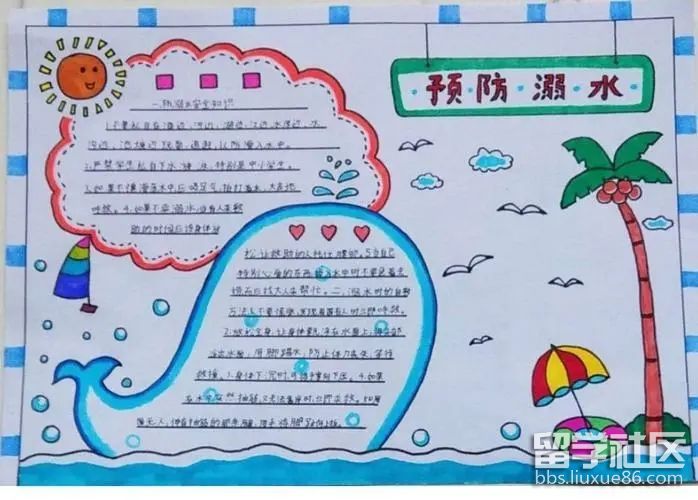 预防溺水
一、防溺水安全知识
1.不要私自在海边、河边、湖边、江边、水库边、水
沟边、池塘边玩耍、追赶,以防滑入水中。
2.严禁学生私自下水游泳,特别是中小学生
3.如果不慎滑落水中应吸足气,拍打着水,大声地
呼救。4.如果不幸溺水,当有人来救
助的时候应将身体放
松让救助的人托住腰部。5.当自己
特别心爱的东西掉入水中时不要急着去
捞而应找大人来帮忙。二、溺水时的自救
方法:1.不要慌张,发现周围有人时立即呼救。
2.放松全身,让身体飘浮在水面上,将头部
浮出水面,用脚踢水,防止体力丧失,等待
救援。3.身体下沉时,可将手掌向下压。4.如果
在水中突然抽筋,又无法靠岸时,立即求救。如周
围无人,
留学社区
bbs.liuxue86.com